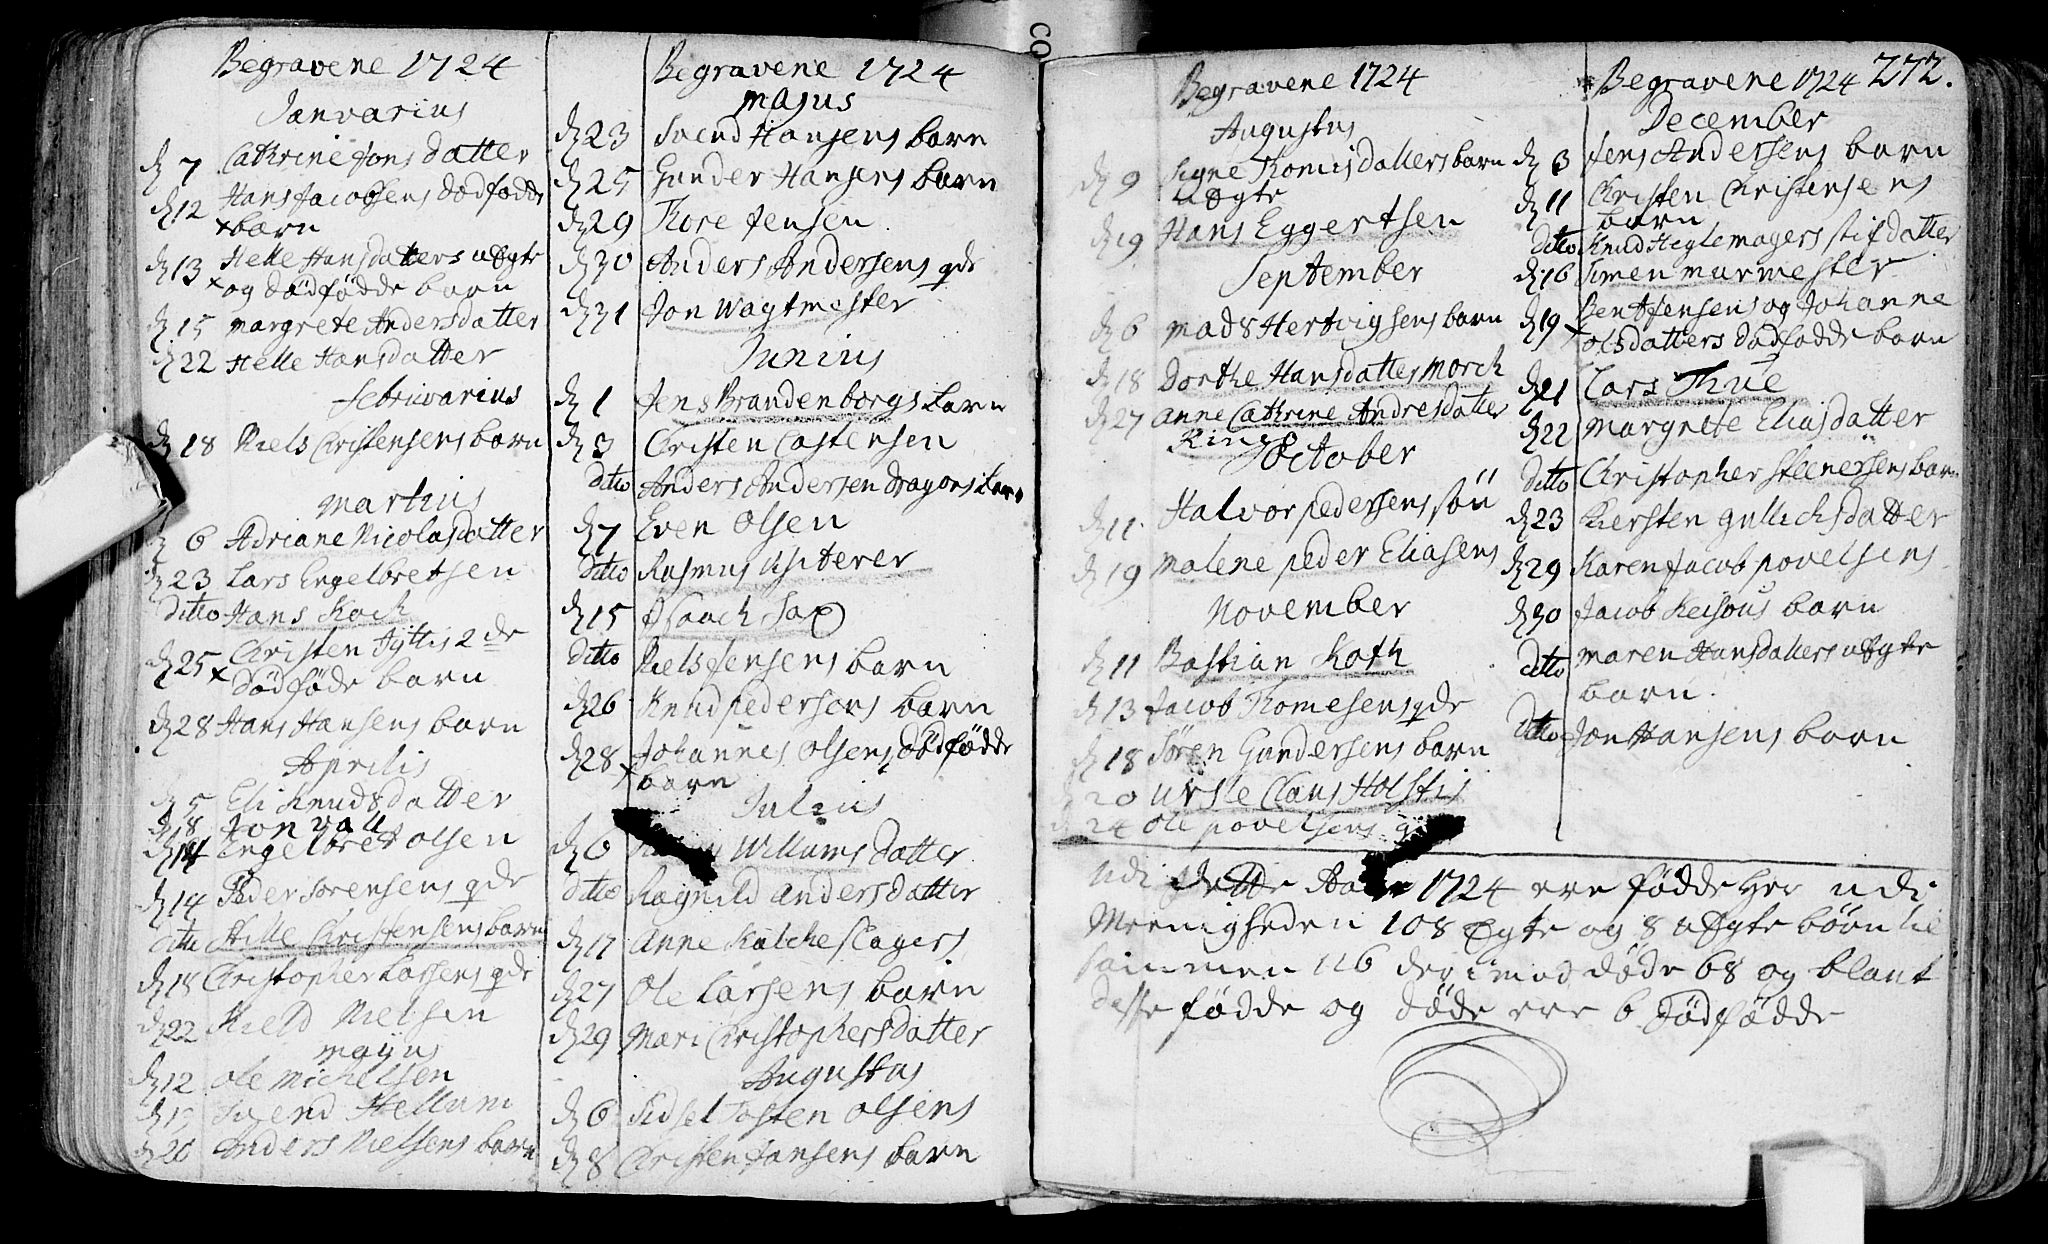 Begravene 1724
Janvarius
d 7 Cathrine Jons datter
d 12 Hans Jacobsens dödfödde
barn
d 13 Helle Hansdatters uægte
og dödfödde barn
d 15 Margrete Andersdatter
d 22 Helle Hansdatter
Febriivarius
d 18 Niels Christensens barn
Martius
6 Adriane Nicolasdatter
d 23 Lars Engelbretsen
Ditto Hans Koch
d 25 Christen Jÿttis 2de
dödföde barn
d 28 Hans Hansens barn
Aprilis
d 5 Eli Knudsdatter
d 8 Jon vall
d 14 Engelbret olsen
d 14 Peder Sörensens qde
Ditto Hille Christensens barn
d 18 Christopher Lassens qde
d 22 Kield Nielsen
Majus
d 12 Ole Michelsen
Svend Hellum
d 20 Anders Nielsens barn
Begravene 1724
Majus
d 23 Svend Hansens barn
d 25 Gunder Hansens barn
d 29 Thore Jensen
d 30 Anders Andersens qde
d 31 Jon Wagtmester
Junius
d 1 Jens Brandenborgs barn
d 3 Christen Castensen
Ditto Anders Andersen dragons barn
d 7 Even Olsen
Ditto Rasmus
d 15 Isaach Sax
Ditto Niels Jensens barn
d 26 Knud pedersens barn
d 28 Johannes Olsens dödfödde
barn
Julius
d 6 Willums datter
Ditto Ragnild andersdatter
d 17 Anne Kalcheslagers
d 27 Ole Larsens barn
d 29 Mari Christophersdatter
Augustus
d 6 Sidsel Tosten Olsens
d 8 Christen Jansens barn
Begravene 1724
Augustus
d 9 Signe Thomisdatters barn
uægte
d 19 Hans Eggertsen
September
d 6 Mads Hertvigsens barn
d 18 Dorthe Hansdatter Morch
d 27 Anne Cathrine Andresdatter
Rings
October
d 11 Halvor pedersens sön
d 19 Malene peder Eliasens
November
d 11 Bastian Koth
d 13 Jacob Thomesens qde
d 18 Sören Gundersens barn
d 20 Ursle Claus Holstis
d 24 Ole povelsens
Begravene 1724 272.
December
d 3 Jens Andersens barn
d 11 Christen Christensens
barn
Ditto Knud Heglemagers stifdatter
d 16 Simen murmester
d 19 Bent Jensens og Johanne
olsdatters dödfödde barn
d 21 Lars Thue
d 22 Margrete Eliasdatter
Ditto Christopher Steenersens barn
d 23 Kiersten gullichsdatter
d 29 Karen Jacob povelsens
d 30 Jacob barn
Ditto Maren Hansdatters uægte
barn.
Ditto Jon Hansens barn
Udi dette Aar 1724 ere födde her udi
Meenigheden 108 Ægte og 8 uægte börn til
sammen 116 derimod döde 68 og blant
disse födde og döde ere 6 dödfödde